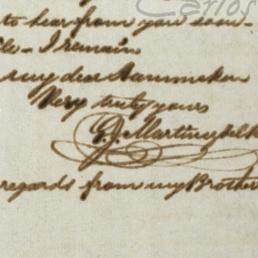 Carlos
to hear from you soon-
I remain
my dear
Very truly yours
regards from my Brother